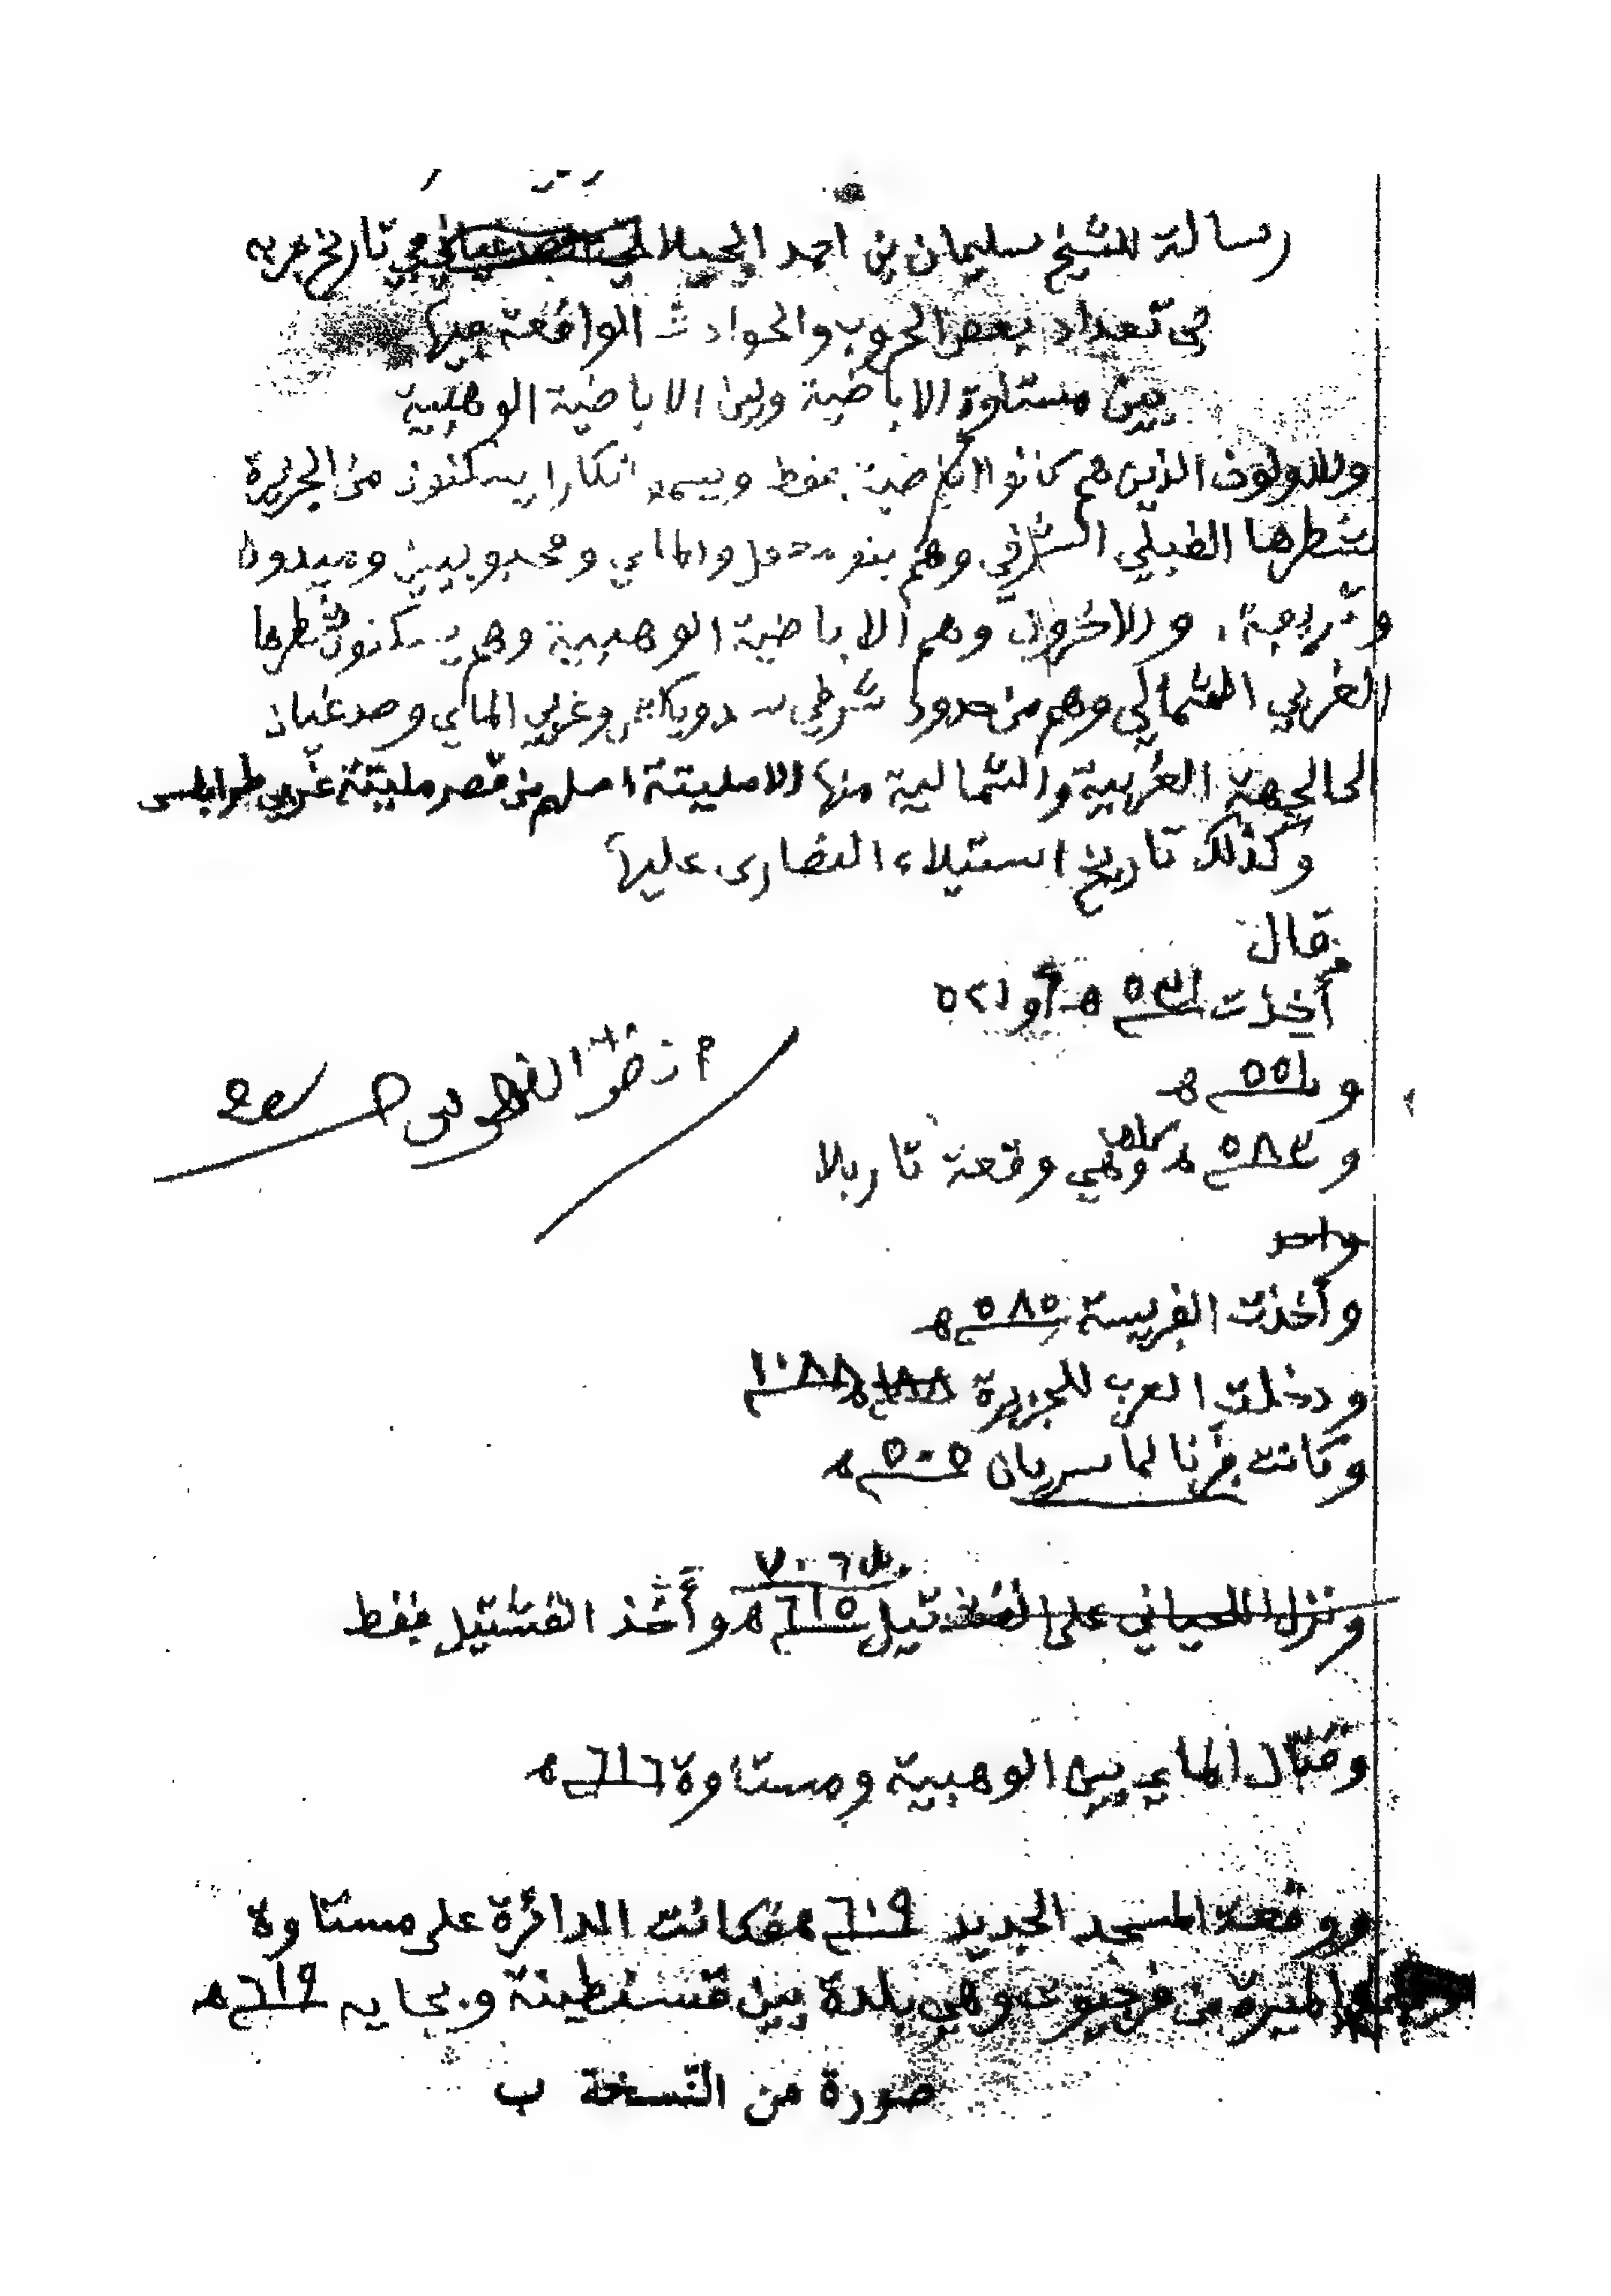 رسالة للشيخ سليمان بن احمد الجيلاتي في تاريخ جربه
في تعداد بعض الحروب والحوادث الواقعة فيها
بين مستاوة الاباضية وبين الاباضية الوهبية
وللاولون الذين هم كانوا اباضية فقط ويسمو انكارا يسكنون من الجزيرة
شطرها القبلي الشرقي وهم بنو معقل والماي ومحبوبين وميدون
والاخرون وهم الاباضية الوهبية وهم يسكنون شطرها
الغربي الشمالي وهم من حدود شرطي سدويكش وغربي الماي وصدغيان
الى الجهة الغربية والشمالية منها الامليتة اصلهم من قصر مليتة غربي طرابلس
وكذلك تاريخ استيلاء النصارى عليها
قال
أخذت ٥٣١ هـ أو ٥٢١
و ٥٥١ هـ
و ٥٨٣ هـ وهي وقعة تاربلا
واحد
وأخذت الفريسة ٥٨٥ هـ
ودخلت العرب للجزيرة ٦٨٨ هـ ١٠٨٨
وكانت ٥٠٥ هـ
٧٠٦
ونزل اللحياني على القشتيل ٦١٥ هـ وأخذ القشتيل فقط
وقتال الماي بين الوهبية ومستاوة ٦١٦ هـ
ووقعة المسجد الجديد ٦١٩ هـ فكانت الدائرة على مستاوة
الميرة من فرجيوت وهي بلدة بين قسنطينة وبجايه ٦١٩ هـ
صورة من النّسخة ب